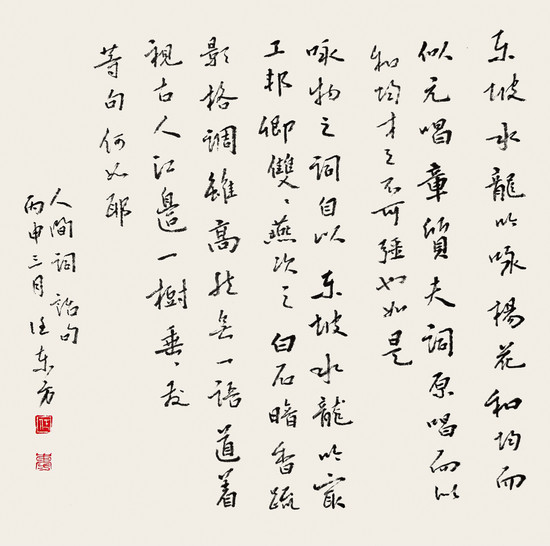 东坡水龍吟咏楊花和均而
似元唱章質夫詞原唱而以
和均才之不可彊也如是
咏物之詞自以东坡水龍吟最
工邦卿雙、燕次之白石暗香疏
影格調雖高然無一語道着
視古人江邊一樹垂、發
等句何如耶
人間詞話句
丙申三月东方